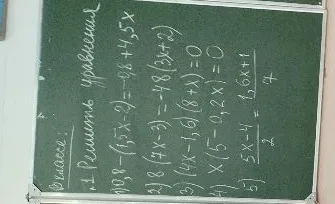 В классе:
№1 Решить уравнения
1) 0,8-(1,5x-2)=-0,8+4,5x
2) 8(7x-3)=-48(3x+2)
3) (4x-1,6)(8+x)=0
4) x(5-0,2x)=0
5) \frac{5x-4}{2} = \frac{1,6x+1}{7}